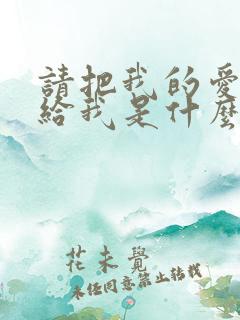 請把我的愛
給我是什麼
花未覺
未經同意禁止轉載